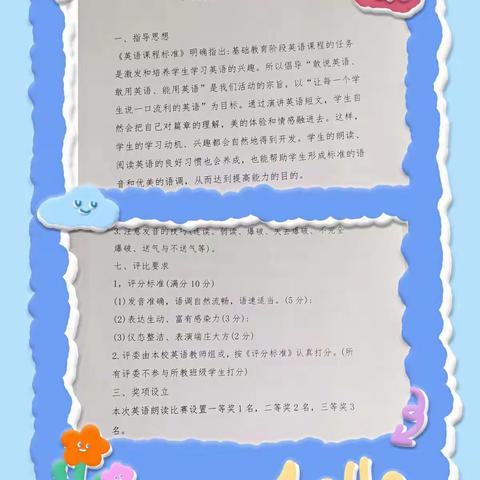 一、指导思想
《英语课程标准》明确指出:基础教育阶段英语课程的任务
是激发和培养学生学习英语的兴趣。所以倡导“敢说英语、
敢用英语、能用英语”是我们活动的宗旨，以“让每一个学
生说一口流利的英语”为目标。通过演讲英语短文，学生自
然会把自己对篇章的理解，美的体验和情感融进去。这样，
学生的学习动机、兴趣都会自然地得到开发。学生的朗读、
阅读英语的良好习惯也会养成，也能帮助学生形成标准的语
音和优美的语调，从而达到提高能力的目的。
3.注意发音的技巧(连读、弱读、爆破、失去爆破、不完全
爆破、送气与不送气等)。
七、评比要求
1，评分标准(满分10分)
(1)发音准确，语调自然流畅，语速适当。(5分);
(2)表达生动、富有感染力(3分);
(3)仪态整洁、表演端庄大方(2分)
2.评委由本校英语教师组成，按《评分标准》认真打分。(所
有评委不参与所教班级学生打分)
三、奖项设立
本次英语朗读比赛设置一等奖1名，二等奖2名，三等奖3
名。